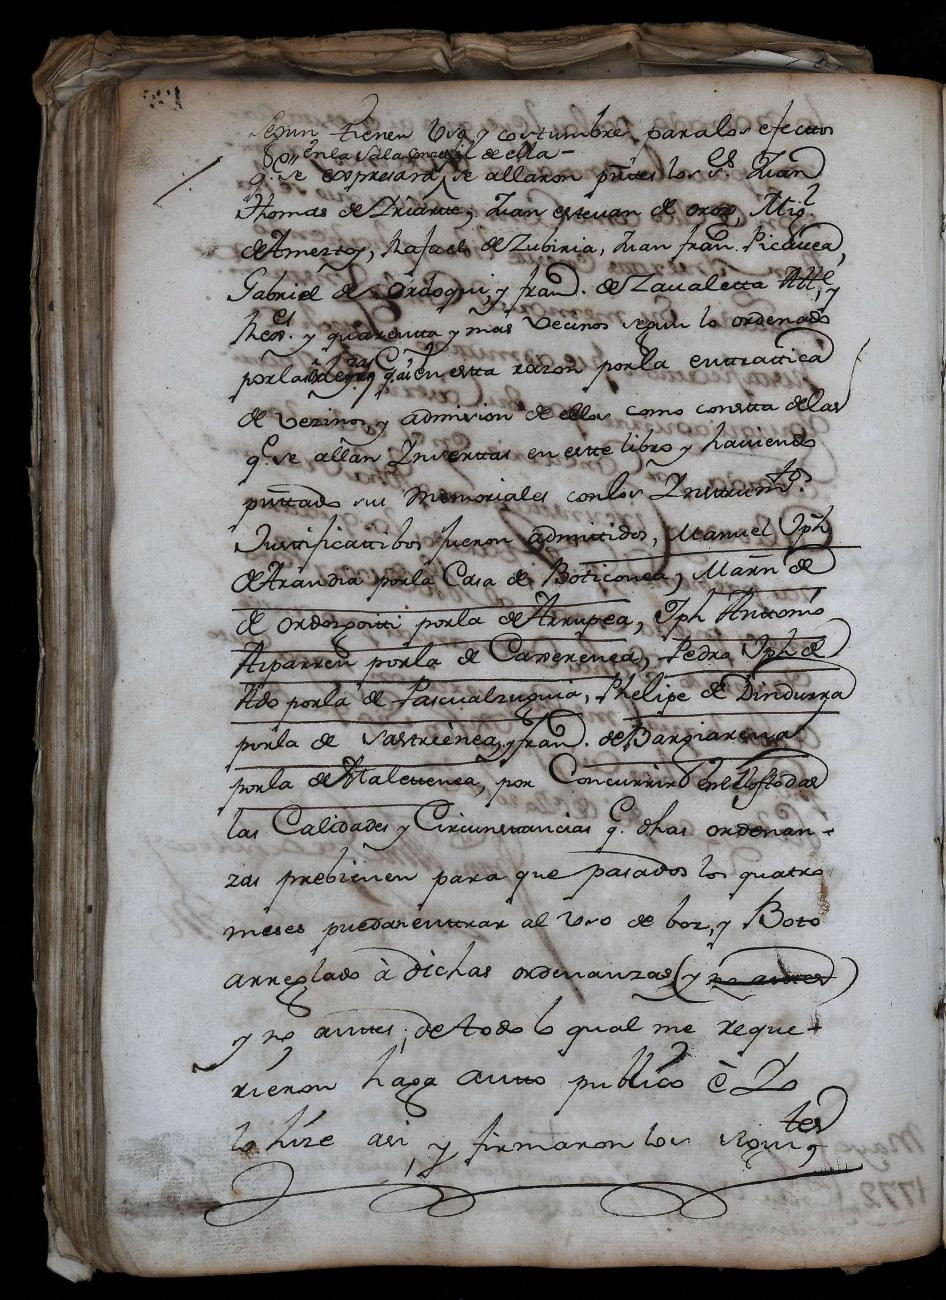 Segun tienen Uso y costumbre para los efectos
en la sala Concegil de ella -
q. se expresara, se allaron pñtes los S.es Juan
Thomas de Yriarte, Juan estevan de oroz, Mig.l
de Ameztoy, Rafael de Zubiria, Juan fran.co Picauea,
Gabriel de Ordoqui, y fran.co de Zaualetta Att.e, y
Reg.es y quarentta y mas Vecinos segun lo ordenado
por las q. ai en estta razon por la enttrattica
de vezinos, y admision de ellos como constta de las
q. se allan Ynserttas en estte libro y haviendo
pñttado sus Memoriales con los Ynstrum.tos
Justtificattibos fueron admittidos, Manuel Jph
de Arandia por la Casa de Botticonea, Marñ de
de ordozgoitti por la de Arrupea, Jph Anttonio
Aiparren por la de Carrerenea, Pedro Jph de
Ado por la de Pascualzuquia, Phelipe de Dindurra
por la de Sastrienea, y fran.co de Bargiarena
por la de Malettenea, por Concurrir en ellos todas
las Calidades y Circunstancias q. dhas ordenan-
zas prebienen para que pasados los quatro
meses puedan enttrar al Uso de boz, y Boto
arreglado à dichas ordenanzas (y no anttes)
y no anttes; de todo lo qual me reque-
rieron haga autto publico è Yo
lo hize asi, y firmaron los siguien.tes